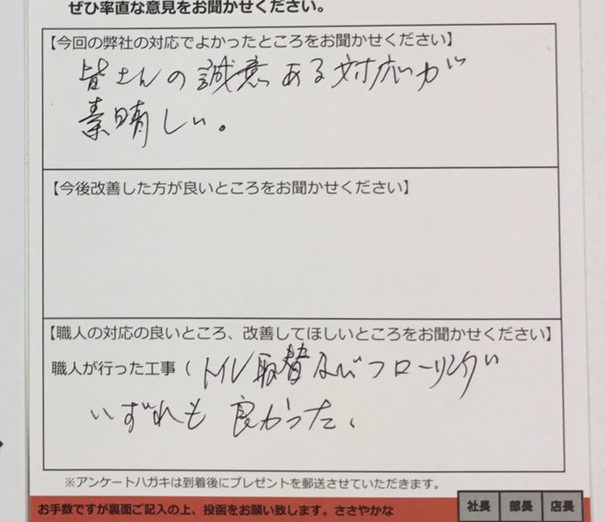 ぜひ率直な意見をお聞かせください。
【今回の弊社の対応でよかったところをお聞かせください】
皆さんの誠意ある対応が
素晴しい。
【今後改善した方が良いところをお聞かせください】
【職人の対応の良いところ、改善してほしいところをお聞かせください】
職人が行った工事（トイレ取替及びフローリング
いずれも良かった。
※アンケートハガキは到着後にプレゼントを郵送させていただきます。
お手数ですが裏面ご記入の上、投函をお願い致します。ささやかな
社長 部長 店長